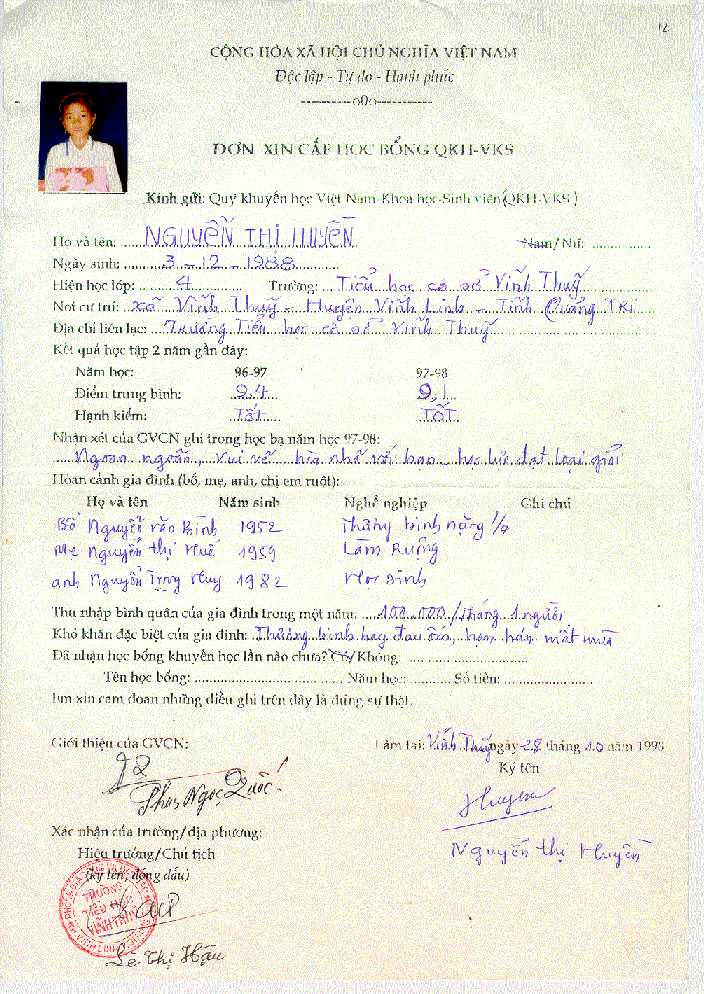 12
CỘNG HÒA XÃ HỘI CHỦ NGHĨA VIỆT NAM
Độc lập - Tự do - Hạnh phúc
----------o0o-----------
ĐƠN XIN CẤP HỌC BỔNG QKH-VKS
Kính gửi: Quỹ khuyến học Việt Nam-Khoa học-Sinh viên (QKH-VKS)
Họ và tên: NGUYỄN THỊ HUYỀN Nam/Nữ:
Ngày sinh: 3 - 12 - 1988
Hiện học lớp: 4 Trường: Tiểu học cơ sở Vĩnh Thuỷ
Nơi cư trú: xã Vĩnh Thuỷ - Huyện Vĩnh Linh - Tỉnh Quảng Trị
Địa chỉ liên lạc: Trường Tiểu học cơ sở Vĩnh Thuỷ
Kết quả học tập 2 năm gần đây:
Năm học: 96-97 97-98
Điểm trung bình: 9,4 9,1
Hạnh kiểm: Tốt TỐT
Nhận xét của GVCN ghi trong học bạ năm học 97-98:
Ngoan ngoãn, vui vẻ hoà nhã với bạn - học lực đạt loại giỏi
Hoàn cảnh gia đình (bố, mẹ, anh, chị em ruột):
Họ và tên Năm sinh Nghề nghiệp Ghi chú
Bố Nguyễn Bình 1952 Thương binh nặng
Mẹ Nguyễn thị Huế 1959 Làm Ruộng
anh Nguyễn Trọng Huy 1982 Học sinh
Thu nhập bình quân của gia đình trong một năm: 100.000/tháng 1 người
Khó khăn đặc biệt của gia đình: Thương binh hay đau ốm, hạn hán mất mùa
Đã nhận học bổng khuyến học lần nào chưa? Có/Không:
Tên học bổng: Năm học: Số tiền:
Em xin cam đoan những điều ghi trên đây là đúng sự thật.
Giới thiệu của GVCN: Làm tại: Vĩnh Thuỷ ngày 28 tháng 10 năm 1998
Ký tên
Ngọc Quốc
Huyền
Xác nhận của trường/địa phương:
Nguyễn thị Huyền
Hiệu trưởng/Chủ tịch
(ký tên, đóng dấu)
TRƯỜNG
TIỂU HỌC
VĨNH THUỶ
Lê Thị Hậu